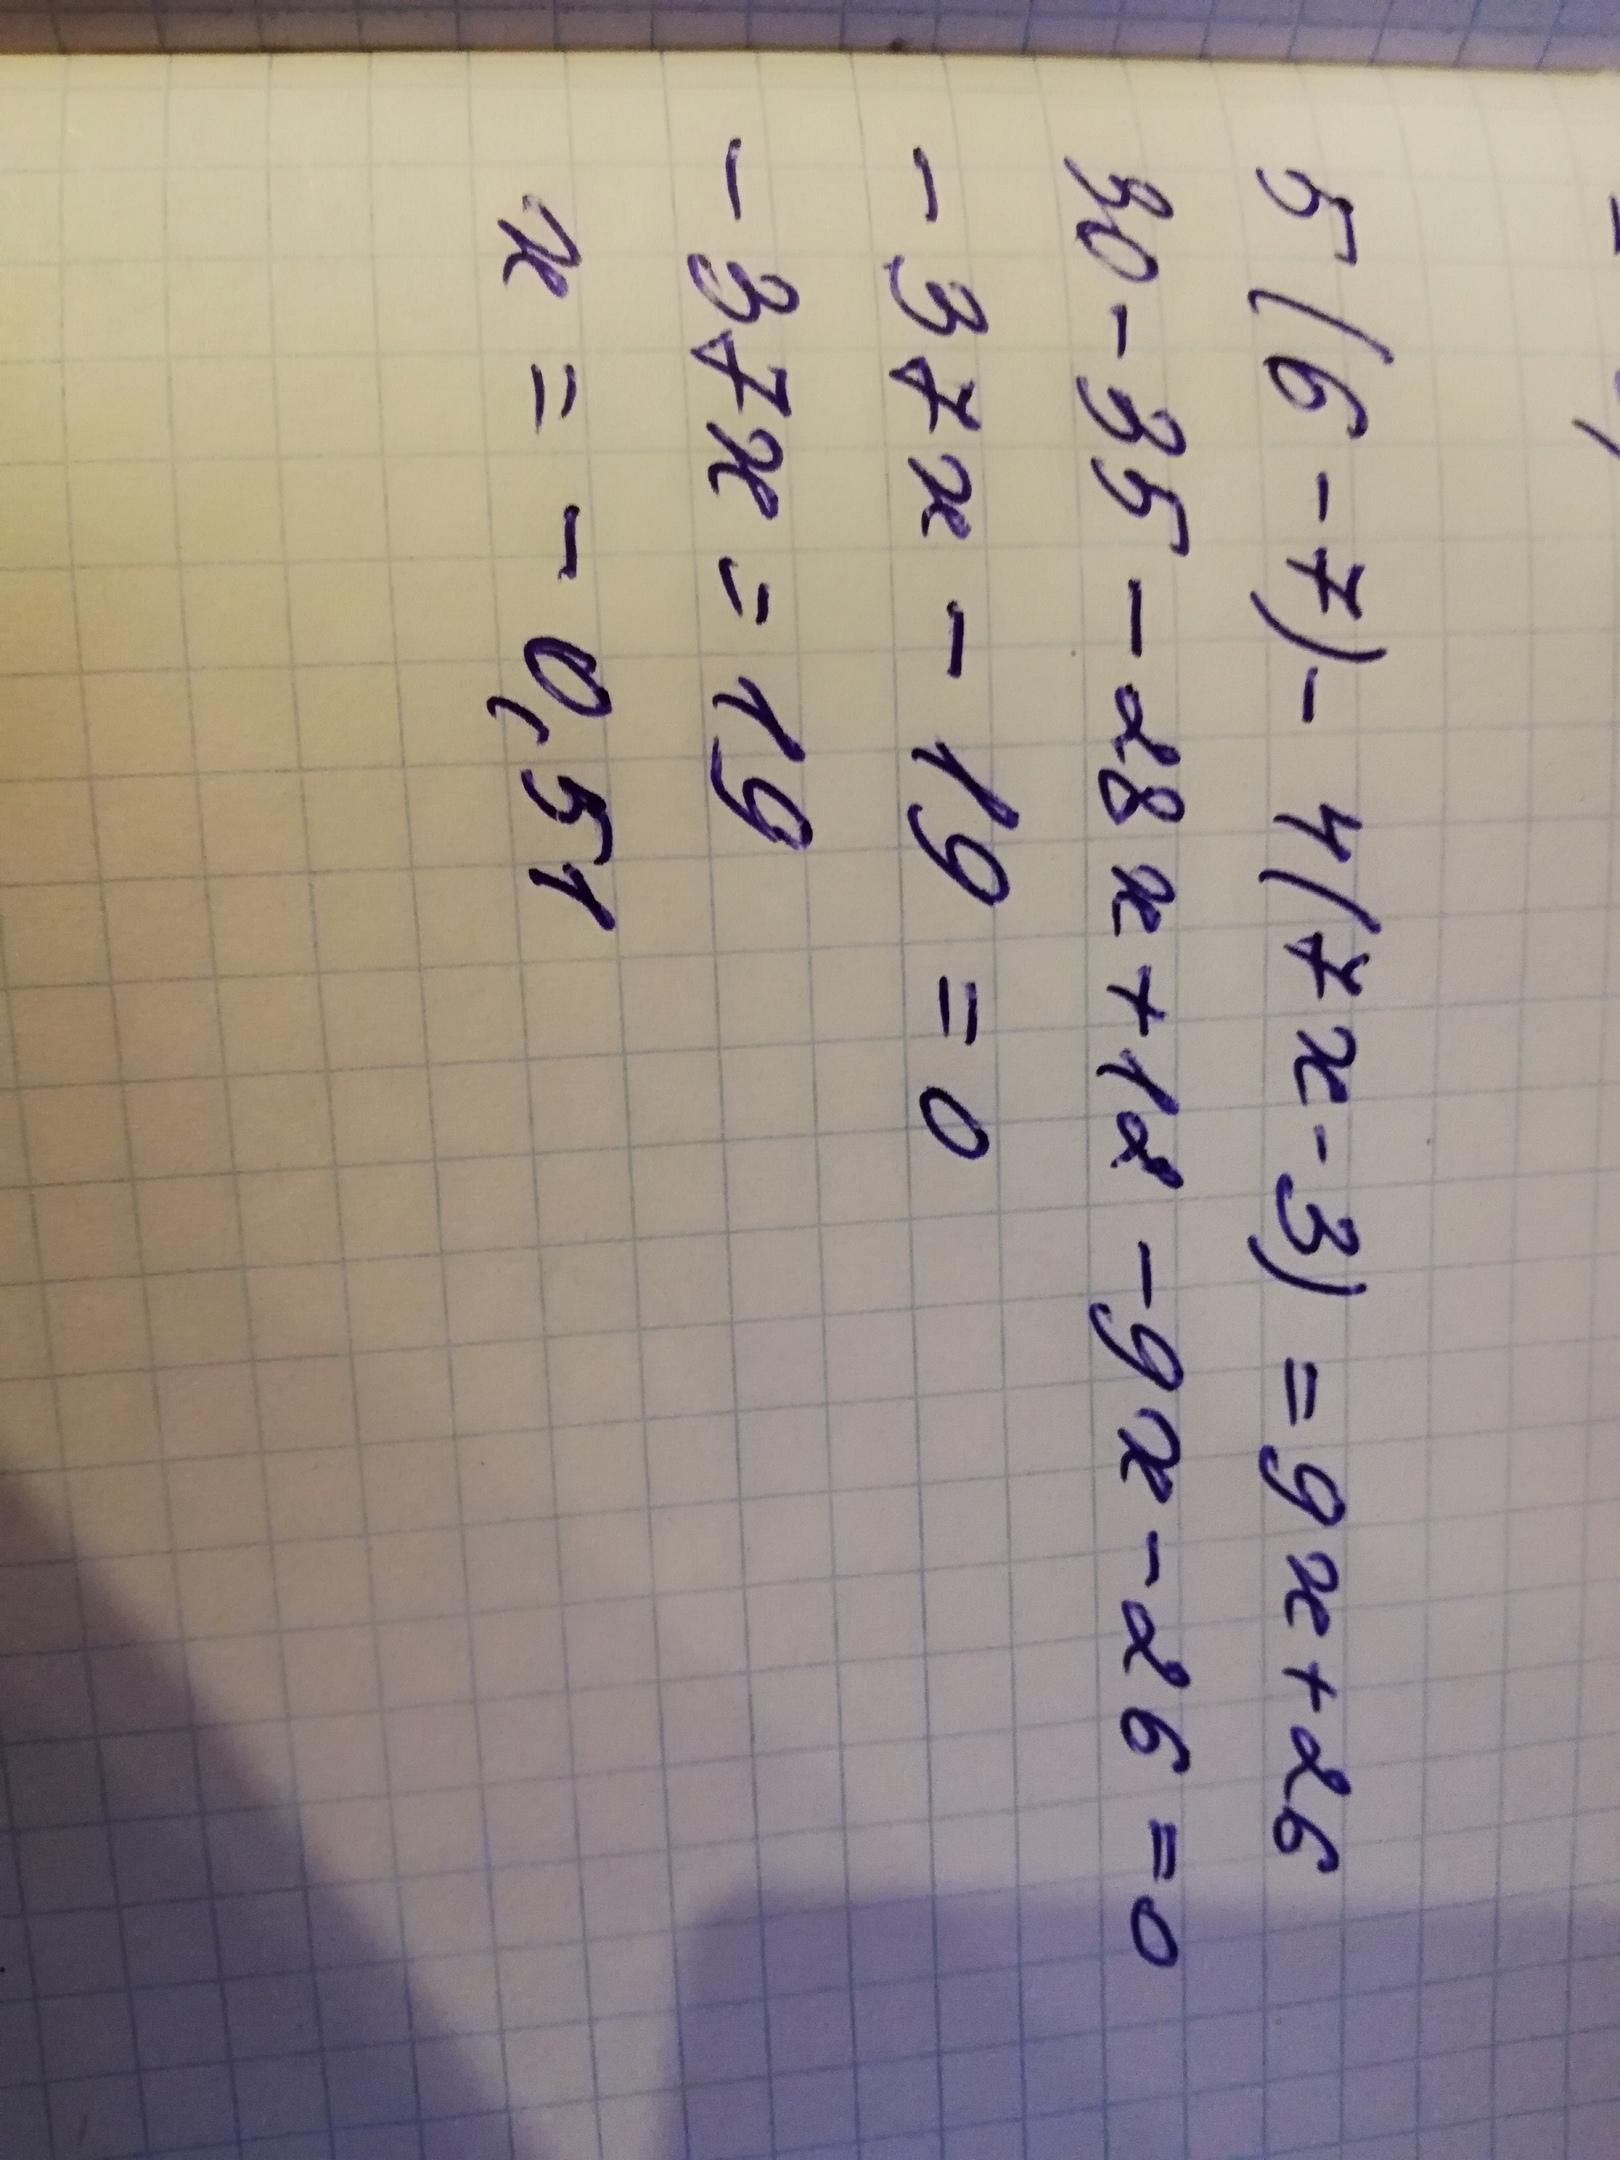 5(6-7)-4(7x-3)=9x+26
30-35-28x+12-9x-26=0
-37x-19=0
-37x=19
x=-0,51